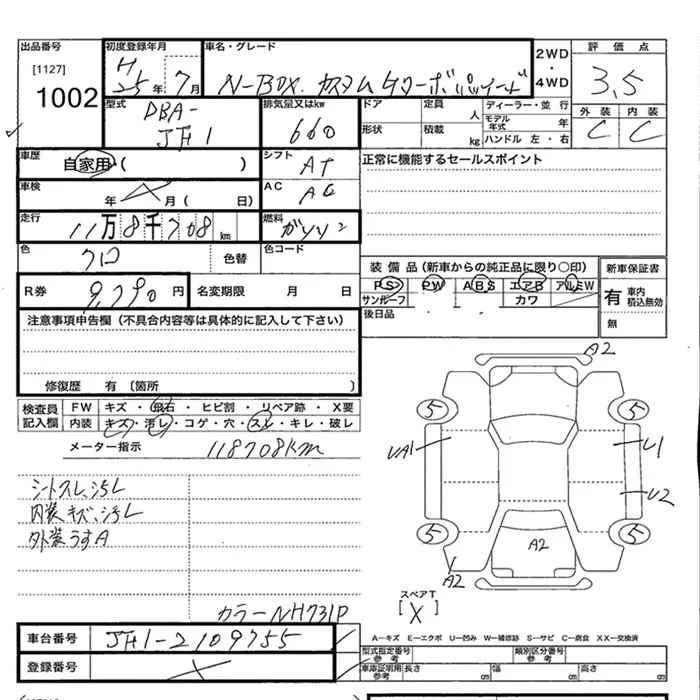 出品番号
[1127]
1002
初度登録年月
H25年7月
車名・グレード
N-BOX カスタム Gターボパッケージ
2WD・4WD
評価点
3.5
外装 内装
C C
型式
DBA-JF1
排気量又はkw
660
ドア 定員 人 ディーラー・並行
モデル年式 年
形状 積載 kg ハンドル 左・右
車歴
自家用・( )
シフト
AT
正常に機能するセールスポイント
車検
年 月( 日)
AC
AC
走行
11万8千708km
燃料
ガソリン
色
クロ
色替
色コード
装備品(新車からの純正品に限り〇印)
新車保証書
PS PW ABS エアB アルミW
サンルーフ カワ
有 車内積込無効
無
後日品
R券 9,790円 名変期限 月 日
注意事項申告欄(不具合内容等は具体的に記入して下さい)
修復歴 有〔箇所 〕
検査員記入欄
FW キズ・飛石・ヒビ割・リペア跡・X要
内装 キズ・汚レ・コゲ・穴・スレ・キレ・破レ
メーター指示 118708km
シートスレ、汚レ
内装キズ、汚レ
外装うすA
カラーNH731P
車台番号 JF1-2109755
登録番号
A2
5 5
UA1 U1
U2
5 5
A2
A2
スペアT
[X]
A―キズ E―エクボ U―凹み W―補修跡 S―サビ C―腐食 XX―交換済
型式指定番号 参考
類別区分番号 参考
車庫証明用 参考 長さ cm 幅 cm 高さ cm